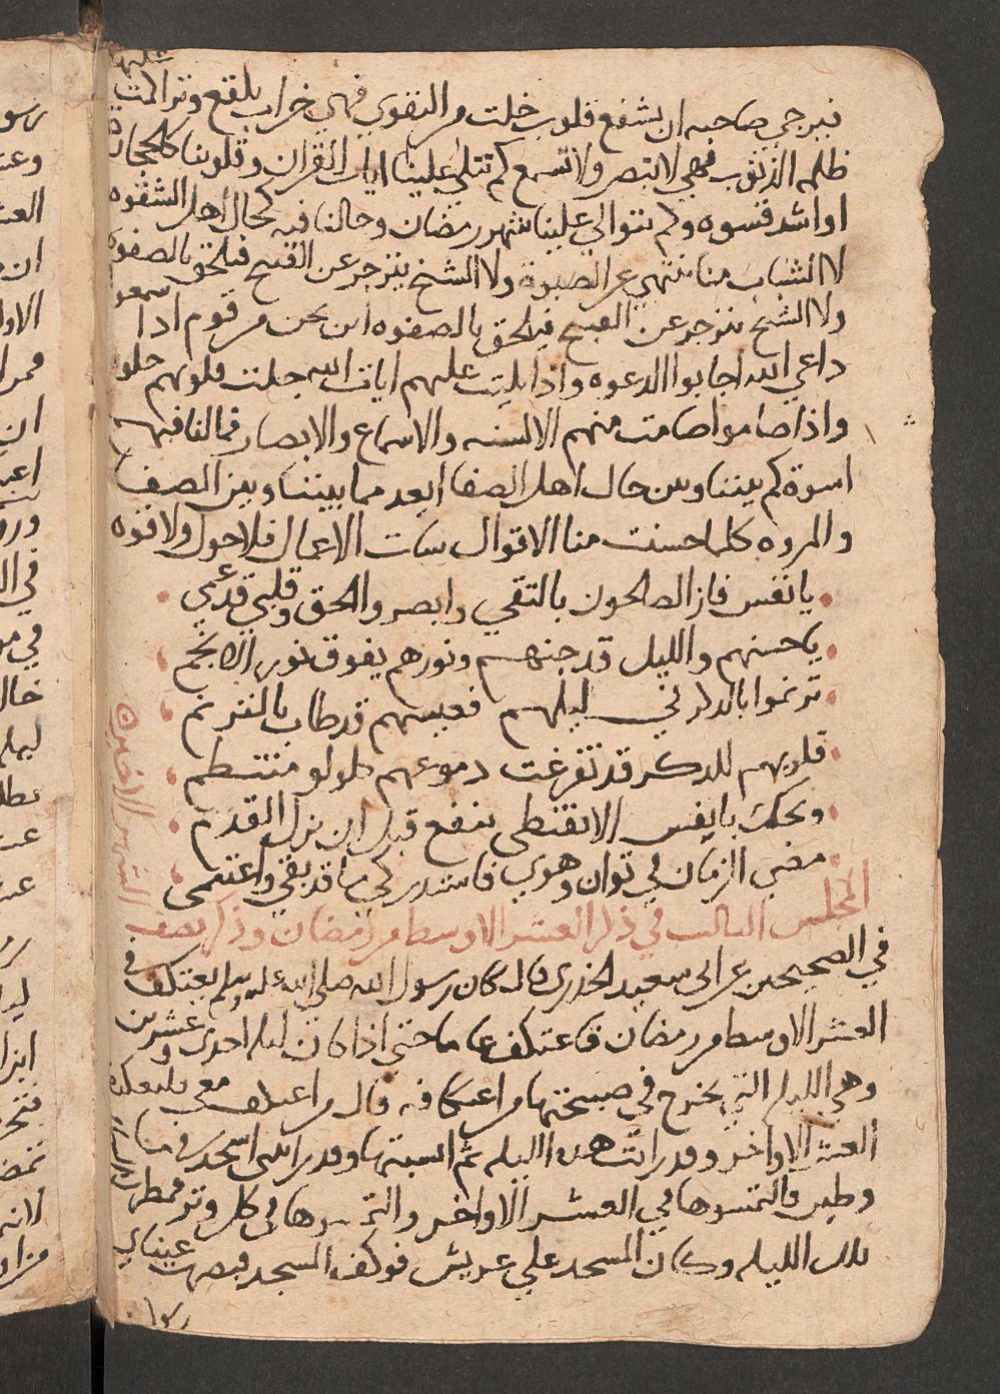 عليها
فيرجي صاحبه ان يشفع قلوب خلت من التقوي فهي خراب بلقع وتراكمت
ظلمه الذنوب فهي لا تبصر ولا تسمع كم تتلي علينا ايات القران وقلوبنا كالحجاره
او اشد قسوه وكم يتوالي علينا شهر رمضان وحالنا فيه كحال اهل الشقوه
لا الشباب منا ينتهي عن الصبوة ولا الشيخ ينزجر عن القبيح فيلتحق بالصفوه
ولا الشيخ ينزجر عن القبيح فيلحق بالصفوه اين نحن من قوم اذا سمعوا
داعي الله اجابوا الدعوه واذا تليت عليهم ايات الله جلت قلوبهم جلوه
واذا صاموا صامت منهم الالسنه والاسماع والابصار فما لنا فيهم
اسوة كم بيننا وبين حال اهل الصفا ابعد مما بيننا وبين الصفا
والمروه كلما حسنت منا الاقوال سات الاعمال فلا حول ولا قوه
يا نفس فاز الصالحون بالتقي وابصر والحق وقلبي قد عمي
يا حسنهم والليل قد جنهم ونورهم يفوق نور الانجم
ترنموا بالذكر في ليلهم فعيشهم قد طاب بالترنم
قلوبهم للذكر قد تفرغت دموعهم كلولو منتظم
ويحك يا نفس الا تقظي ينفع قبل ان يزل القدم
مضي الزمان في توان وهوي فاستدركي ما قد بقي واغتنمي
المجلس الثالث في ذكر العشر الاوسط من رمضان وذكر نصف
الشهر الاخير
في الصحيحين عن ابي سعيد الخدري قال كان رسول الله صلي الله عليه وسلم يعتكف في
العشر الاوسط من رمضان فاعتكف عاما حتي اذا كان ليله احدي وعشرين
وهي الليله التي يخرج في صبيحتها من اعتكافه قال من اعتكف معي فليعتكف
العشر الاواخر وقد رايت هذه الليله ثم انسيتها وقد رايتني اسجد في ما
وطين فالتمسوها في العشر الاواخر والتمسوها في كل وتر فمطرت السما
تلك الليله وكان المسجد علي عريش فوكف المسجد فبصرت عيناي
رسول